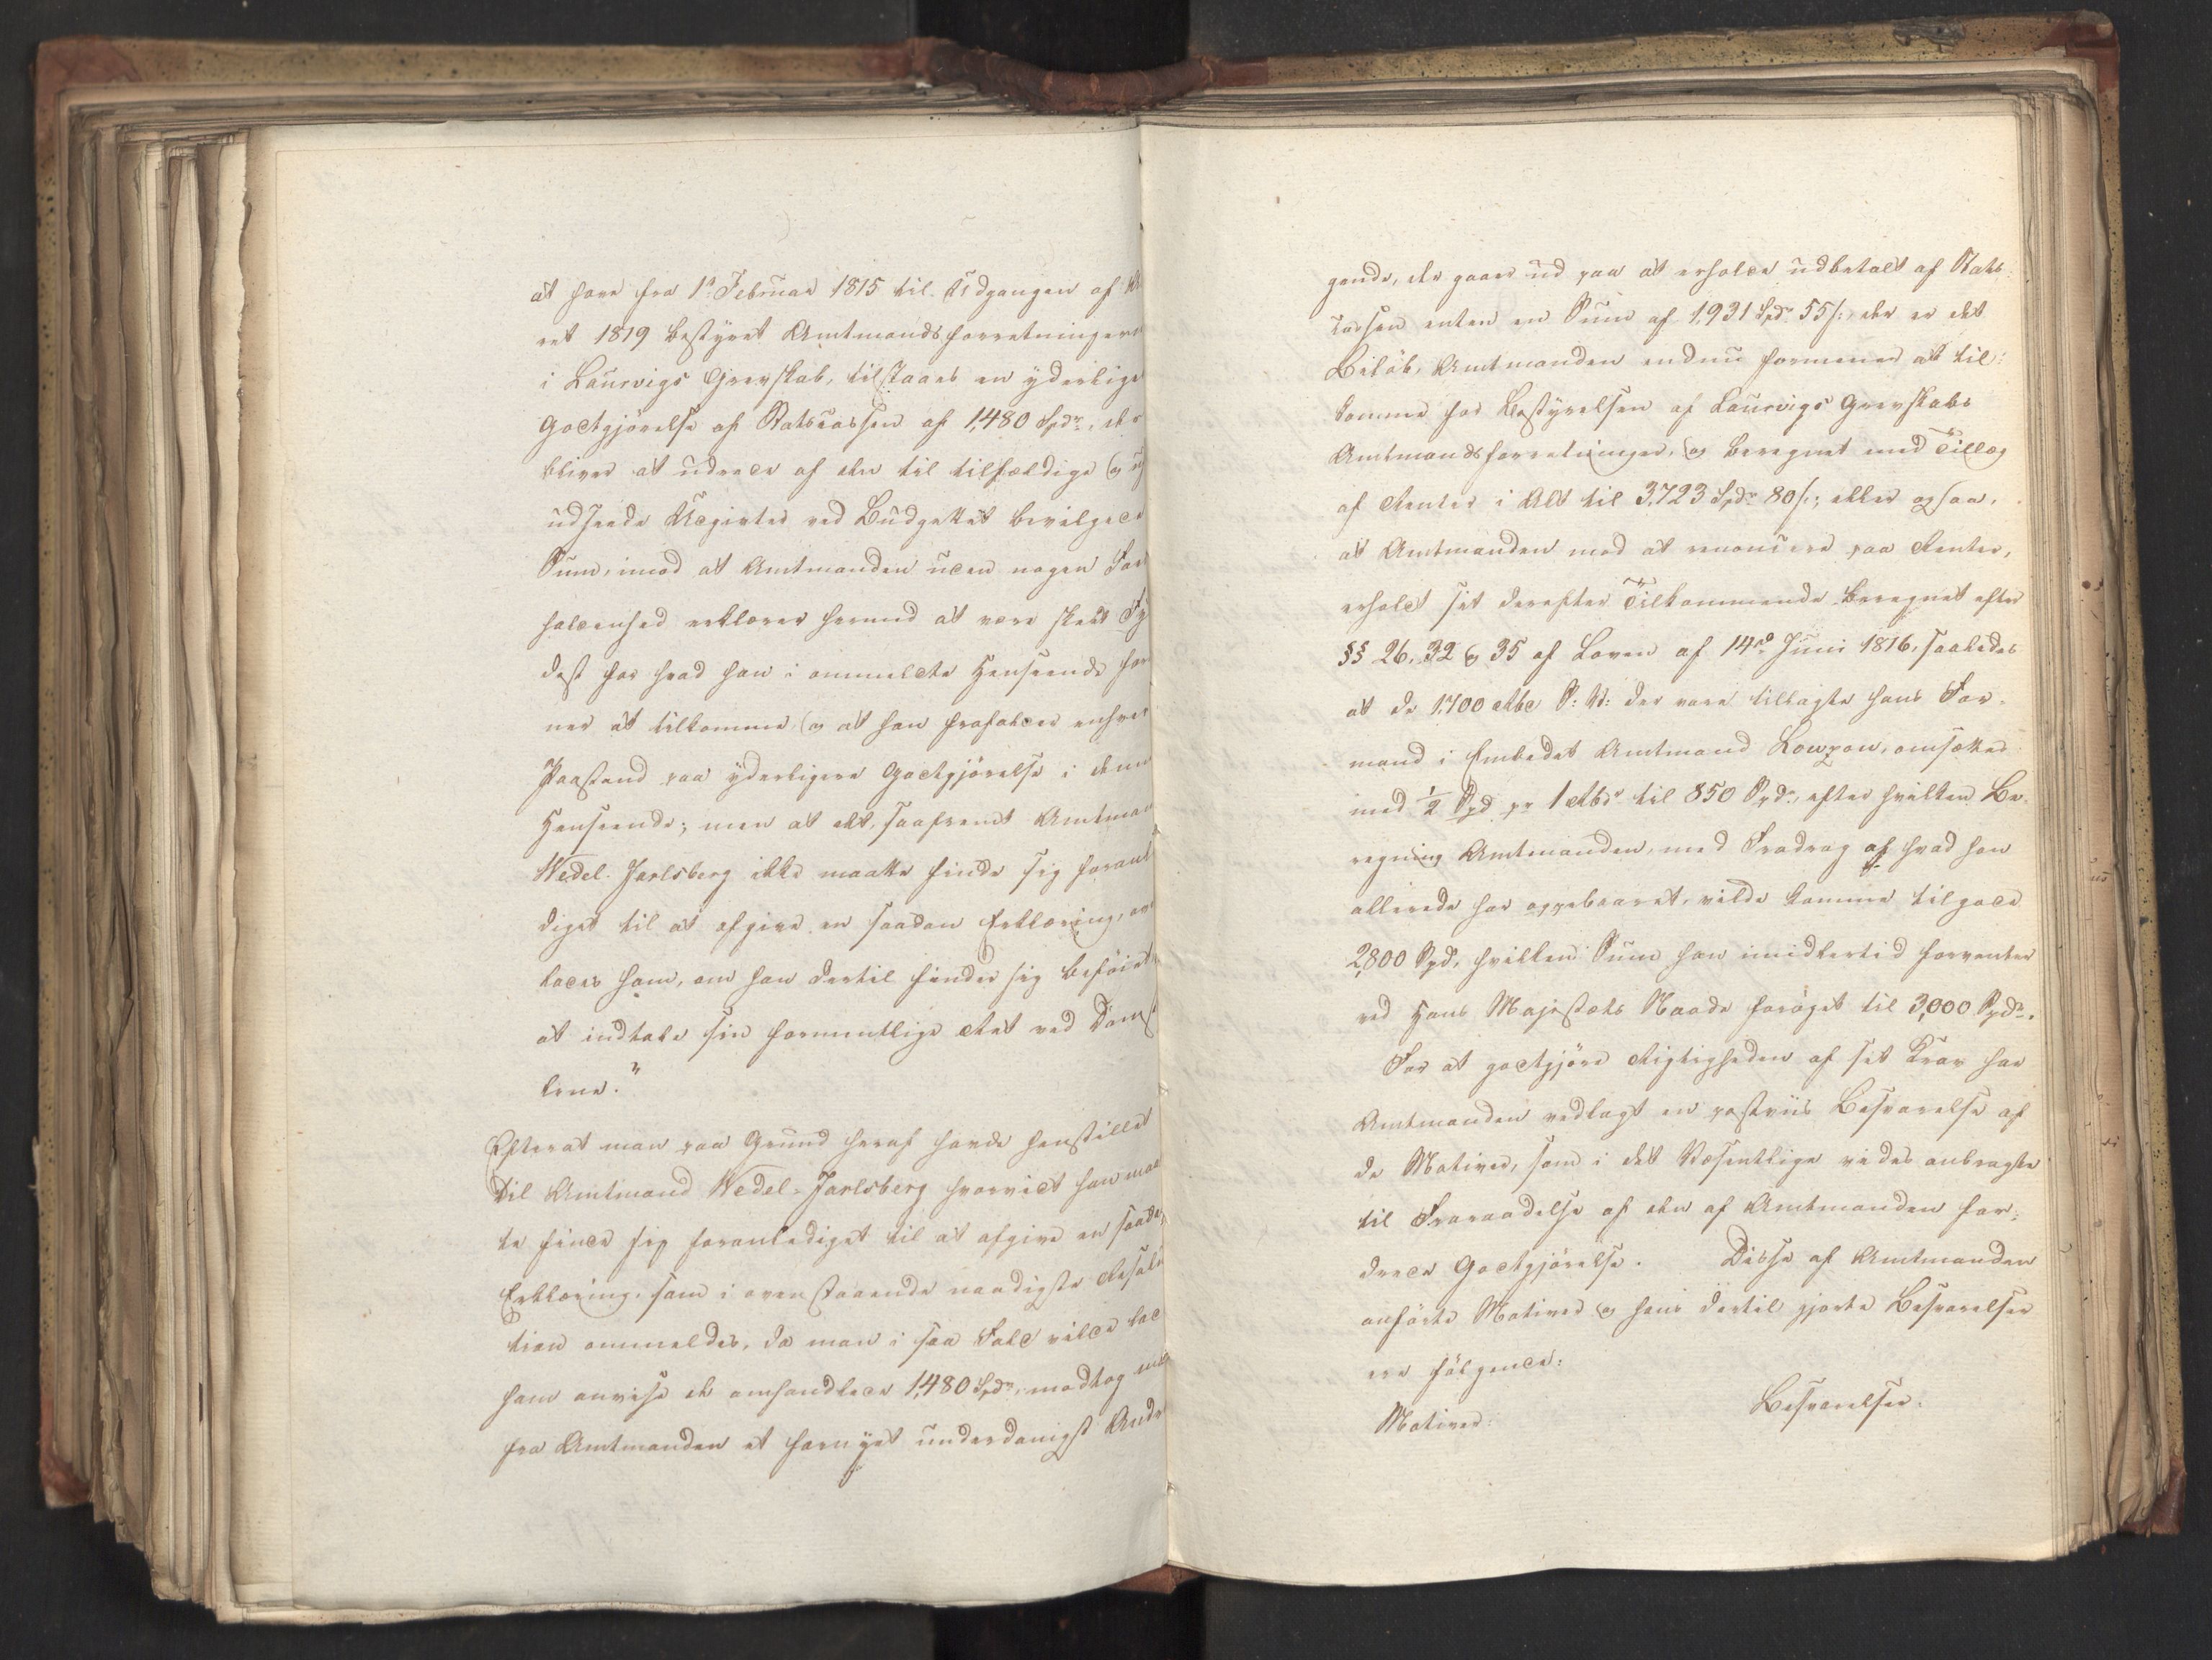 at have fra 1ste Februar 1815 til Udgangen af Aa
ret 1819 bestyret Amtmandsforretningerne
i Laurvigs Grevskab, tilstaaes en yderlige
Godtgjörelse af Statscassen af 1,480 Spdr., der
bliver at udrede af den til tilfældige og u
udseede Udgivter ved Budgettet bevilgede
Sum, imod at Amtmanden uden nogen For
holdenhed erklærer herved at være skeet Fy
dest for hvad han i ommeldte Henseende for
ner at tilkomme, og at han frafalder enhver
Paastand paa yderligere Godtgjörelse i denne
Henseende; men at det, saafremt Amtman
Wedel-Jarlsberg ikke maatte finde sig foranl
diget til at afgive en saadan Erklæring, over
lades ham, om han dertil finder sig beföiet,
at indtale sin formentlige Ret ved Domst
lene."
Efterat man paa Grund heraf havde henstillet
til Amtmand Wedel-Jarlsberg hvorvidt han maat
te finde sig foranlediget til at afgive en saada
Erklæring, som i ovenstaaende naadigste Resolu
tion ommeldes, da man i saa Fald vilde lade
ham anvise de omhandlede 1,480 Spdr., modtog man
fra Amtmanden et fornyet underdanigst Andra
gende, der gaaer ud paa at erholde udbetalt af Stats
cassen enten en Sum af 1,931 Spdr. 55 s:, der er det
Belöb, Amtmanden endnu formener at til-
komme for Bestyrelsen af Laurvigs Grevskabs
Amtmandsforretninger, og beregnet med Tillæg
af Renter i Alt til 3,723 Spdr. 80 s:; eller ogsaa,
at Amtmanden mod at renoncere paa Renter,
erholdt sit derefter Tilkommende beregnet efter
§§ 26, 32 og 35 af Loven af 14de Juni 1816, saaledes
at de 1,700 Rbd S: V: der vare tillagte hans For-
mand i Embedet Amtmand Lowzow, omsættes
med ½ Spd pr 1 Rbdr til 850 Spdr., efter hvilken Be-
regning Amtmanden, med Fradrag af hvad han
allerede har oppebaaret, vilde komme tilgode
2,800 Spd, hvilken Sum han imidlertid forventer
ved Hans Majestæts Naade foröget til 3,000 Spdr.
For at godtgjöre Rigtigheden af sit Krav har
Amtmanden vedlagt en postviis Besvarelse af
de Motiver, som i det Væsentlige vides anbragte
til Fraraadelse af den af Amtmanden for-
drede Godtgjörelse. Disse af Amtmanden
anförte Motiver og hans dertil gjorte Besvarelser
ere fölgende:
Motiver: Besvarelser: